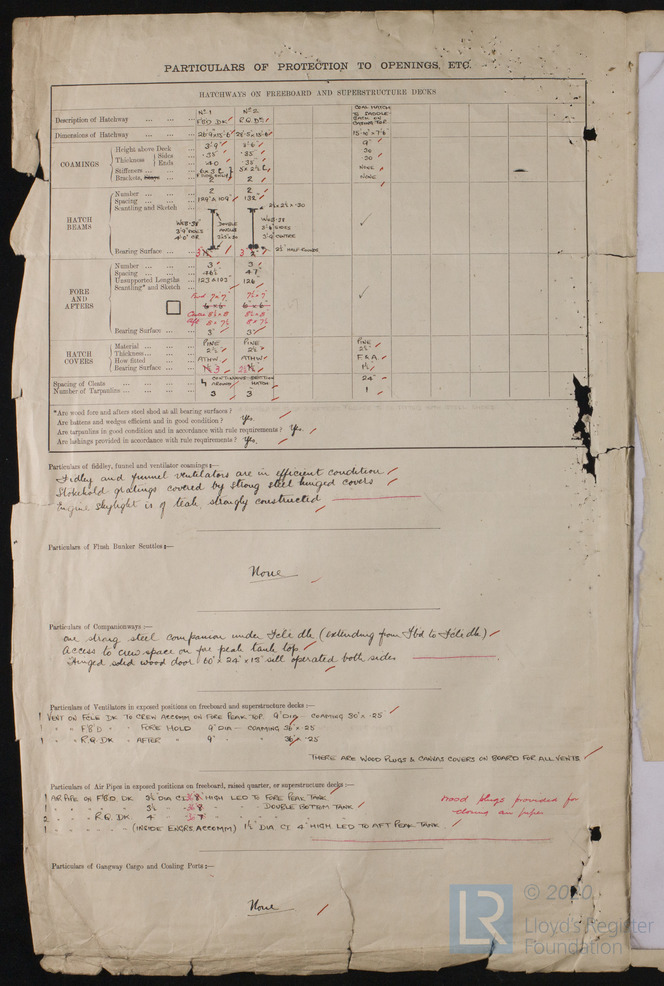 PARTICULARS OF PROTECTION TO OPENINGS, ETC.
HATCHWAYS ON FREEBOARD AND SUPERSTRUCTURE DECKS
Description of Hatchway Nº 1 FBD DK Nº 2 R.Q. DK COAL HATCH TO SADDLE BACK ON CASING TOP
Dimensions of Hatchway
COAMINGS
Height above Deck 3'9" 3'6" 9"
Thickness Sides .35 .35 .30
Ends .40 .35 .30
Stiffeners NONE
Brackets, Stays 2 2 NONE
HATCH BEAMS
Number 2 2
Spacing 129" & 109" 132"
Scantling and Sketch
WEB .38 DOUBLE ANGLE
WEB .38 3'6" SIDES
2½" HALF ROUND
Bearing Surface 3½ 3½
FORE AND AFTERS
Number 3 3
Spacing 46½ 47
Unsupported Lengths 123 & 103" 126
Scantling* and Sketch
Fwd 7 x 7 7½ x 7
6 x 6 6 x 6
8½ x 8 8½ x 8
Aft 8 x 7½ 8 x 7½
Bearing Surface 3" 3"
HATCH COVERS
Material PINE PINE PINE
Thickness 2½" 2½" 2½"
How fitted ATHW. ATHW. F & A.
Bearing Surface 1½
Spacing of Cleats CONTINUOUS SECTION AROUND HATCH 24"
Number of Tarpaulins 3 3 1
*Are wood fore and afters steel shod at all bearing surfaces?
Are battens and wedges efficient and in good condition? Yes.
Are tarpaulins in good condition and in accordance with rule requirements? Yes.
Are lashings provided in accordance with rule requirements? Yes.
Particulars of fiddley, funnel and ventilator coamings:—
Fidley and funnel ventilators are in efficient condition
Stokehold gratings covered by strong steel hinged covers
Engine Skylight is of teak, strongly constructed
Particulars of Flush Bunker Scuttles:—
None
Particulars of Companionways:—
One strong steel companion under Fcle dk (extending from Fbd to Fcle dk)
Access to crew space on fore peak tank top
Hinged solid wood door 60" x 24" x 18" sill operated both sides
Particulars of Ventilators in exposed positions on freeboard and superstructure decks:—
1 VENT ON FOCLE DK TO CREW ACCOMM ON FORE PEAK TOP 9" DIA - COAMING 30" x .25
1 " " FBD " " FORE HOLD 9" DIA - COAMING 36" x .25
1 " " R.Q. DK " AFTER " 9" " " 36" x .25
THERE ARE WOOD PLUGS & CANVAS COVERS ON BOARD FOR ALL VENTS
Particulars of Air Pipes in exposed positions on freeboard, raised quarter, or superstructure decks:—
1 AIR PIPE ON FBD DK 3½ DIA CI HIGH LED TO FORE PEAK TANK
DOUBLE BOTTOM TANK
2 " " R.Q. DK 4"
1 " " (INSIDE ENGRS ACCOMM) 1½ DIA CI 4" HIGH LED TO AFT PEAK TANK
Wood plugs provided for closing air pipes
Particulars of Gangway Cargo and Coaling Ports:—
None
LR
© 2020
Lloyd's Register
Foundation